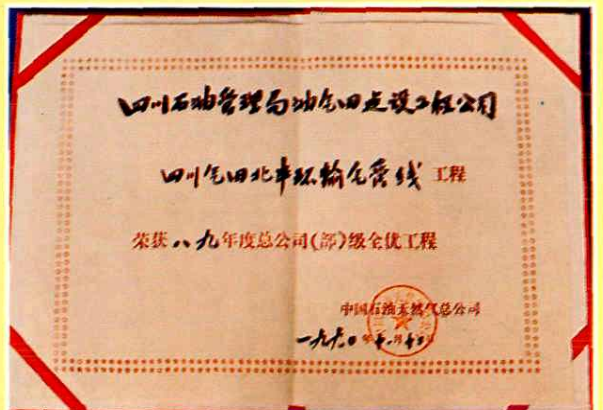 四川石油管理局油气田建设工程公司
四川气田北半环输气管线 工程
荣获八九年度总公司(部)级全优工程
中国石油天然气总公司
一九九〇年 月 日